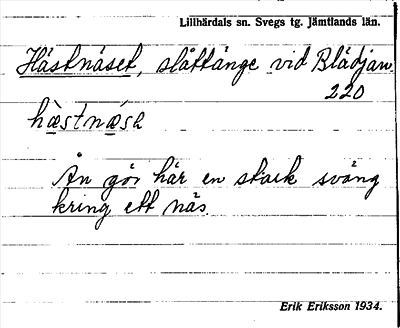 Lillhärdals sn. Svegs tg. Jämtlands län.
Hästnäset, slåttänge vid Blädjan
220
hàstnǽsɛ
Ån gör här en stark sväng
kring ett näs.
Erik Eriksson 1934.